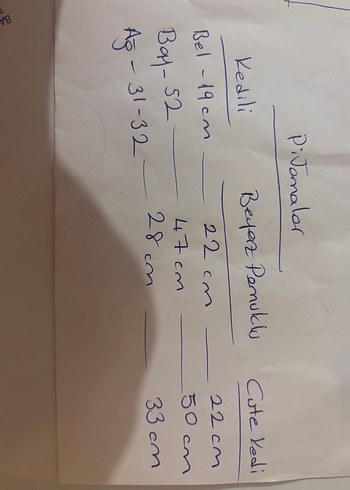 Pijamalar
Kedili Beyaz Pamuklu Cute Kedi
Bel - 19 cm — 22 cm — 22 cm
Boy - 52 — 47 cm — 50 cm
Ağ - 31-32 — 28 cm — 33 cm